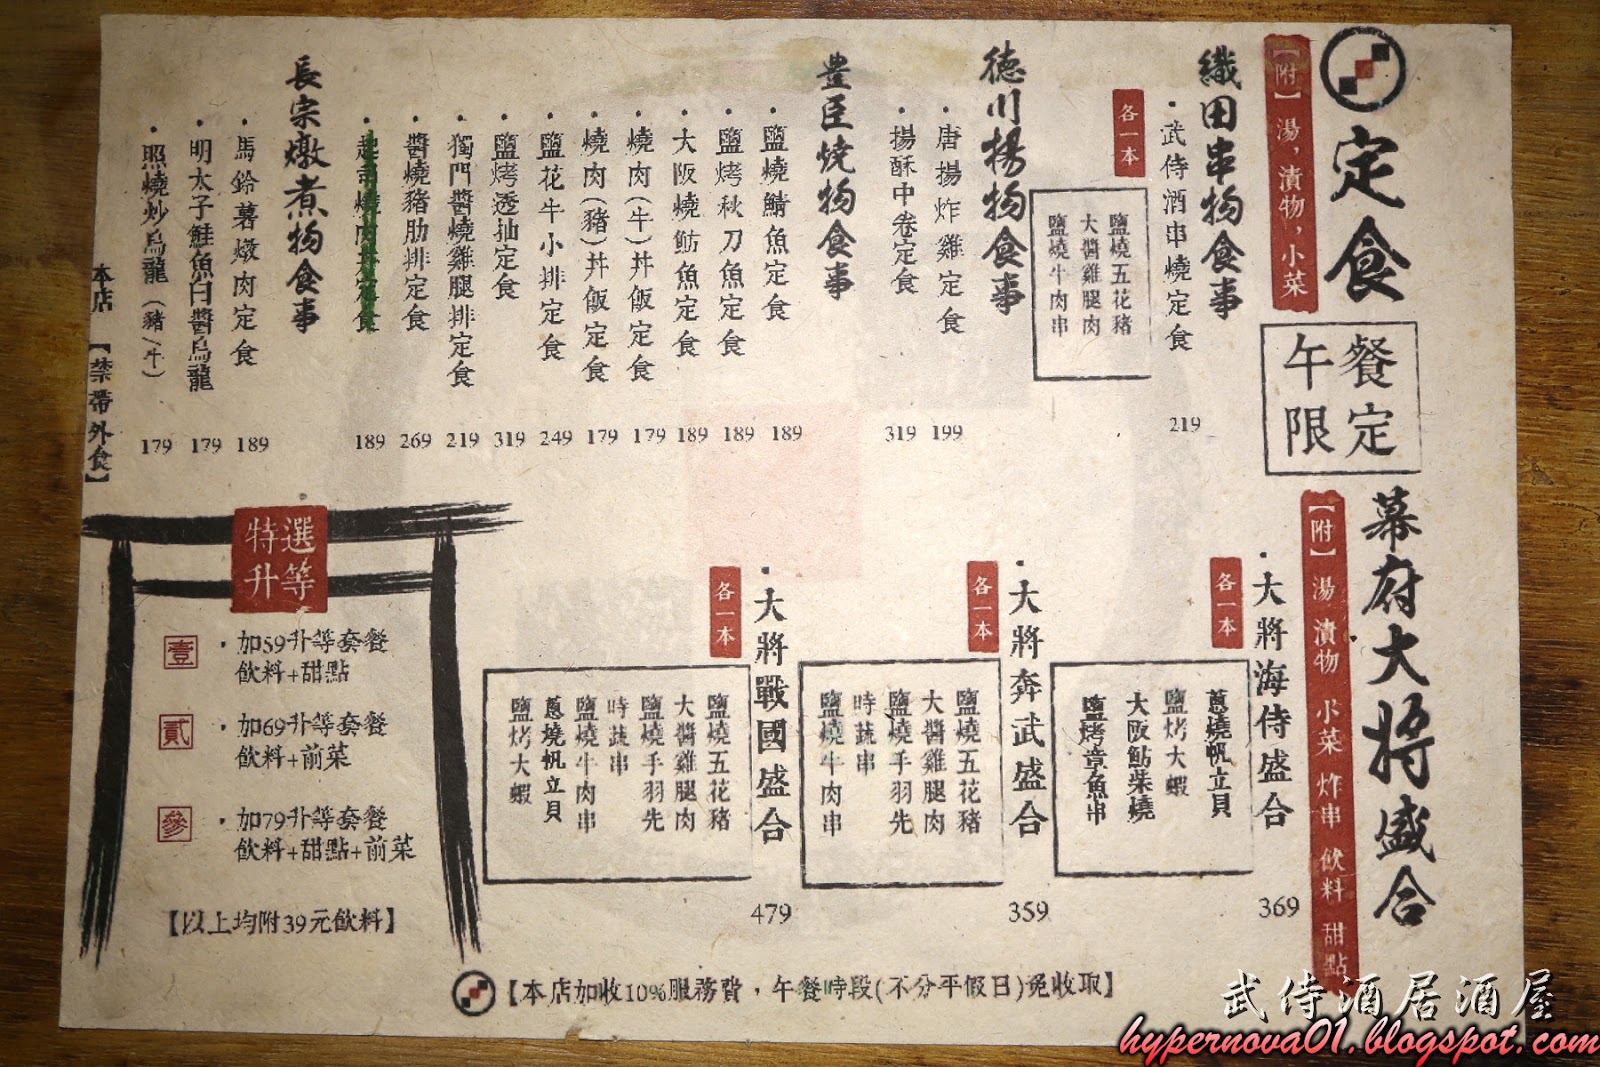 定食
【附】湯,漬物,小菜
午餐
限定
織田串物食事
・武侍酒串燒定食 219
各一本
鹽燒五花豬
大醬雞腿肉
鹽燒牛肉串
德川揚物食事
・唐揚炸雞定食 199
・揚酥中卷定食 319
豊臣燒物食事
・鹽燒鯖魚定食 189
・鹽烤秋刀魚定食 189
・大阪燒魴魚定食 189
・燒肉(牛)丼飯定食 179
・燒肉(豬)丼飯定食 179
・鹽花牛小排定食 249
・鹽烤透抽定食 319
・獨門醬燒雞腿排定食 219
・醬燒豬肋排定食 269
・起司燒肉丼定食 189
長宗燉煮物食事
・馬鈴薯燉肉定食 189
・明太子鮭魚白醬烏龍 179
・照燒炒烏龍(豬/牛) 179
本店【禁帶外食】
幕府大將盛合
【附】湯 漬物 小菜 炸串 飲料 甜點
・大將海侍盛合 369
各一本
蔥燒帆立貝
鹽烤大蝦
大阪鮎柴燒
鹽烤章魚串
・大將奔武盛合 359
各一本
鹽燒五花豬
大醬雞腿肉
鹽燒手羽先
時蔬串
鹽燒牛肉串
・大將戰國盛合 479
各一本
鹽燒五花豬
大醬雞腿肉
鹽燒手羽先
時蔬串
鹽燒牛肉串
蔥燒帆立貝
鹽烤大蝦
特選
升等
壹 ・加59升等套餐
飲料+甜點
貳 ・加69升等套餐
飲料+前菜
參 ・加79升等套餐
飲料+甜點+前菜
【以上均附39元飲料】
【本店加收10%服務費,午餐時段(不分平假日)免收取】
武侍酒居酒屋
hypernova01.blogspot.com